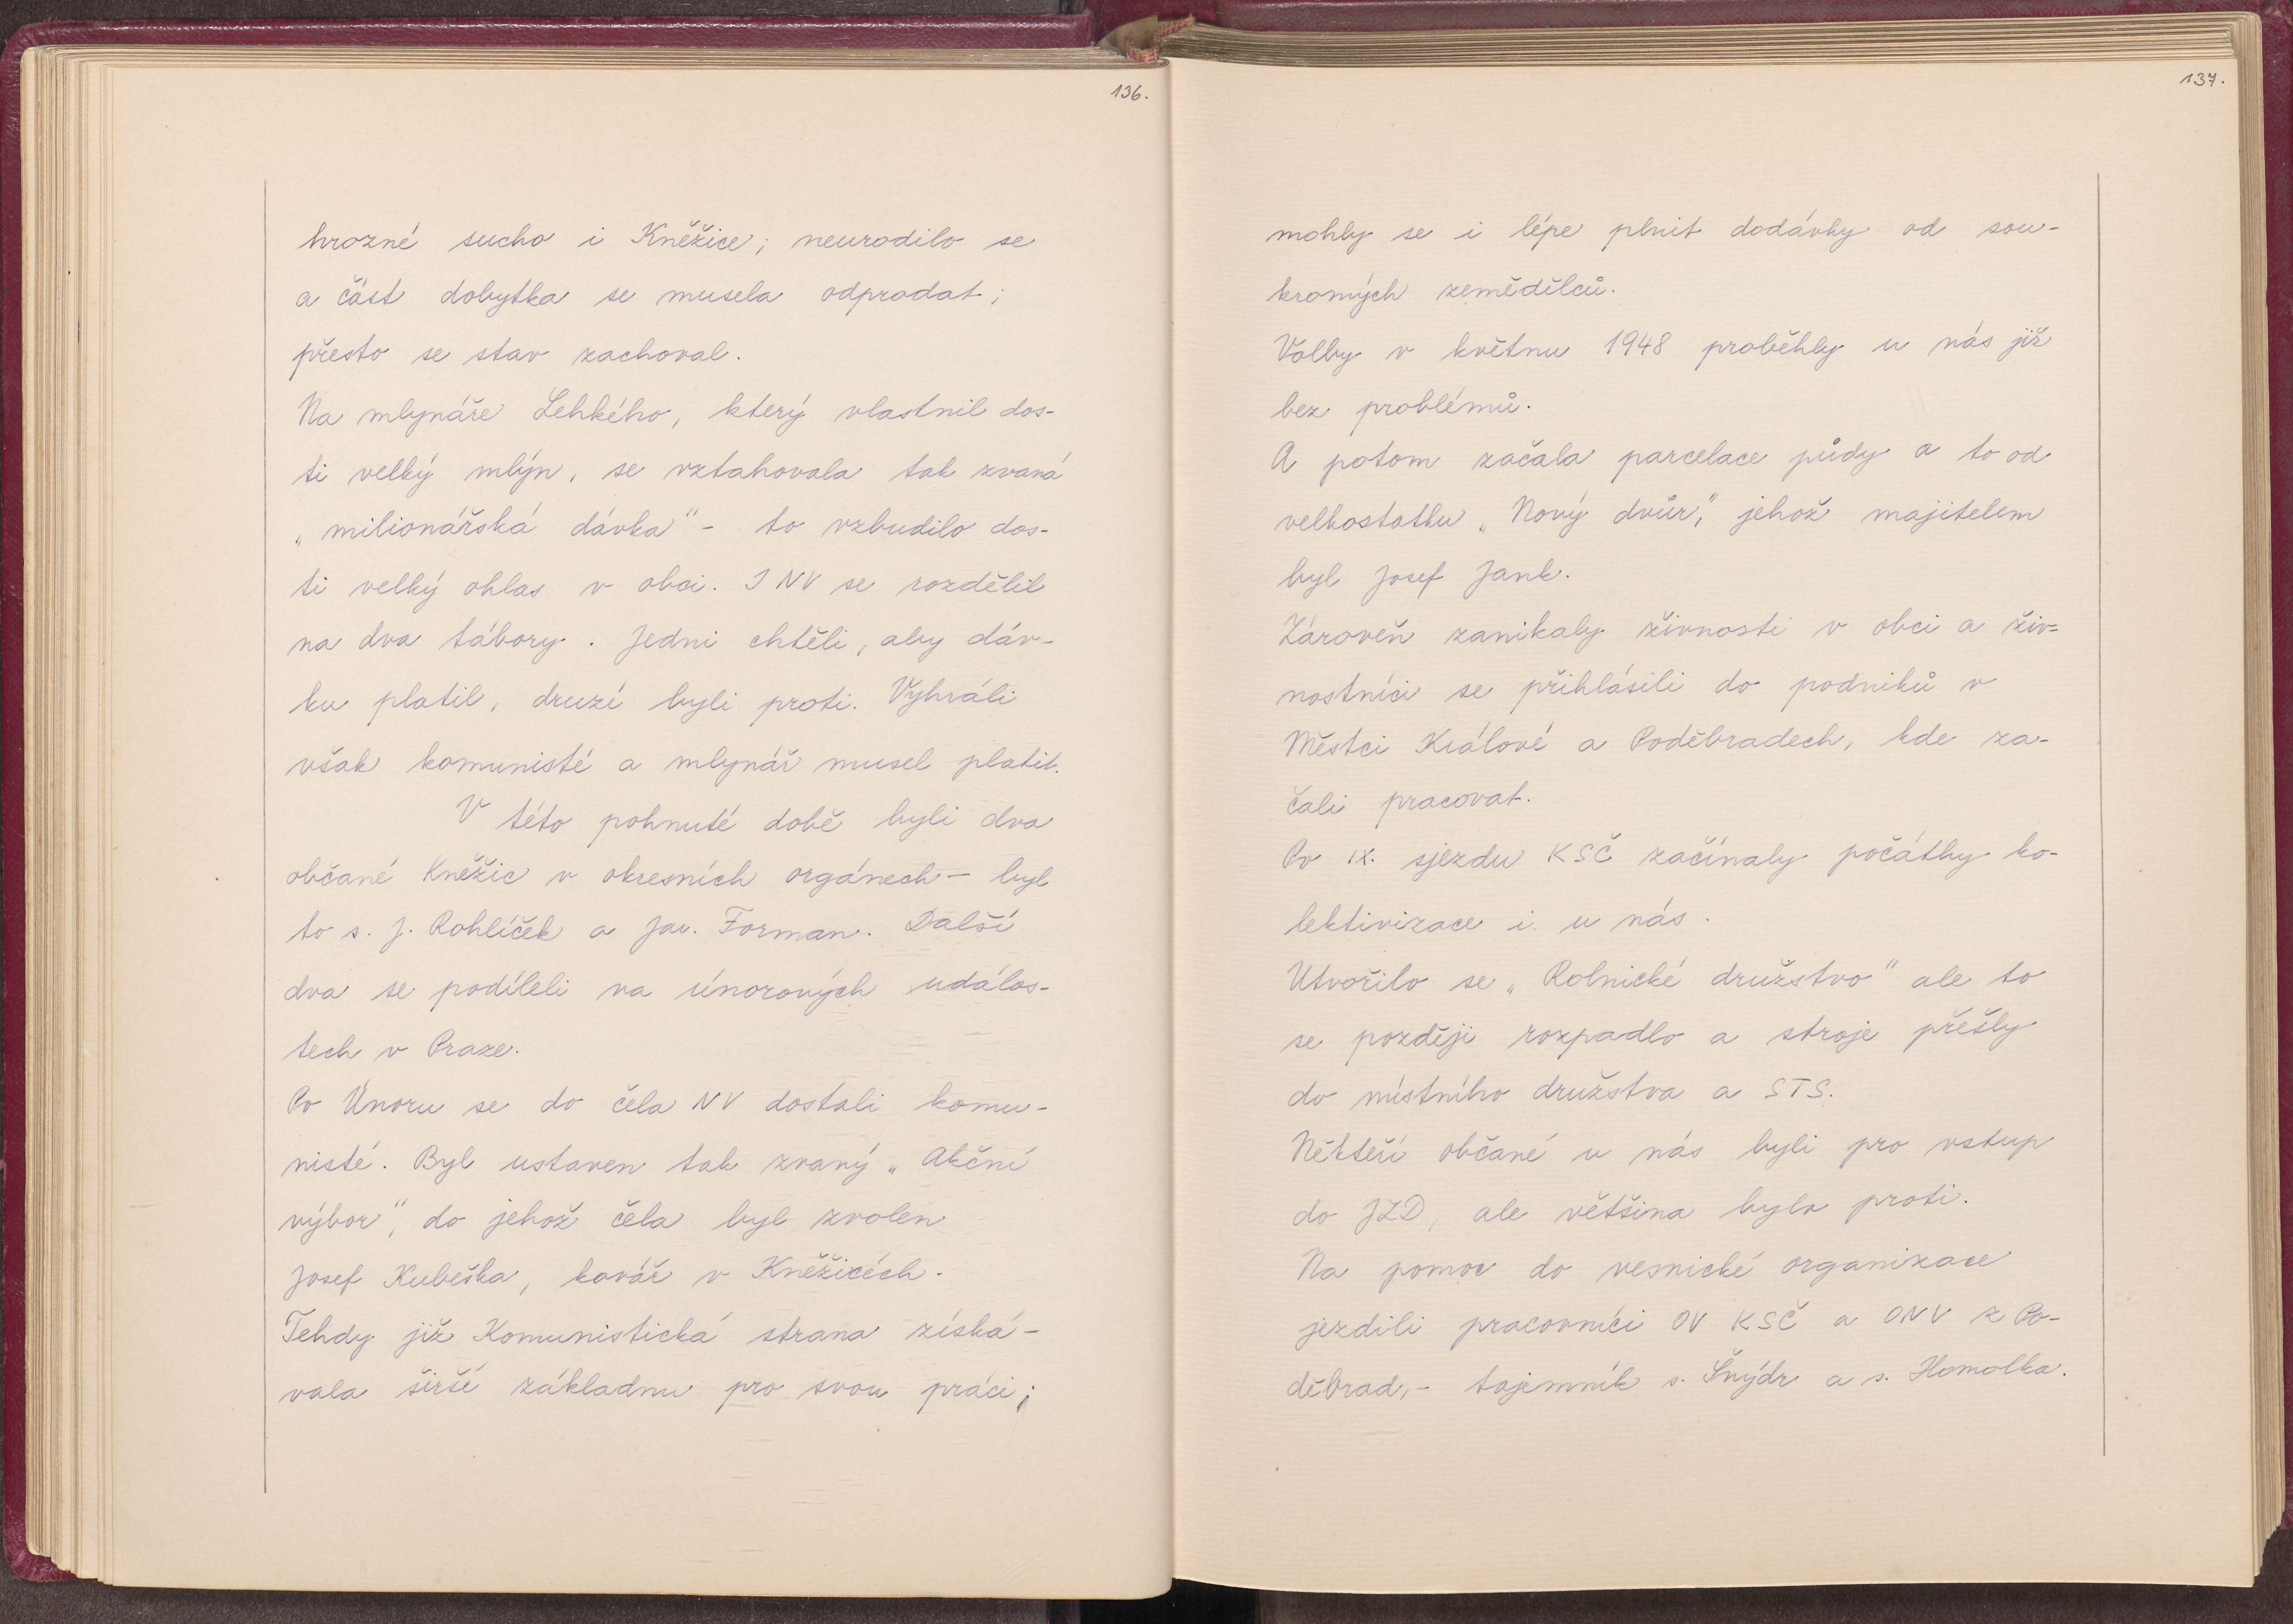 136.
hrozné sucho i Kněžice; neurodilo se
a část dobytka se musela odprodat;
přesto se stav zachoval.
Na mlynáře Lehkého, který vlastnil dos-
ti velký mlýn, se vztahovala tak zvaná
„milionářská dávka" - to vzbudilo dos-
ti velký ohlas v obci. I NV se rozdělil
na dva tábory. Jedni chtěli, aby dáv-
ku platil, druzí byli proti. Vyhráli
však komunisté a mlynář musel platit.
V této pohnuté době byli dva
občané Kněžic v okresních orgánech - byl
to s. J. Rohlíček a Jar. Forman. Další
dva se podíleli na únorových událos-
tech v Praze.
Po Únoru se do čela NV dostali komu-
nisté. Byl ustaven tak zvaný „Akční
výbor", do jehož čela byl zvolen
Josef Kubeška, kovář v Kněžicéch.
Tehdy již Komunistická strana získá-
vala širší základnu pro svou práci;
137.
mohly se i lépe plnit dodávky od sou-
kromých zemědělců.
Volby v květnu 1948 proběhly u nás již
bez problémů.
A potom začala parcelace půdy a to od
velkostatku „Nový dvůr," jehož majitelem
byl Josef Jank.
Zároveň zanikaly živnosti v obci a živ=
nostníci se přihlásili do podniků v
Městci Králové a Poděbradech, kde za-
čali pracovat.
Po IX. sjezdu KSČ začínaly počátky ko-
lektivizace i u nás.
Utvořilo se „Rolnické družstvo" ale to
se později rozpadlo a stroje přešly
do místního družstva a STS.
Někteří občané u nás byli pro vstup
do JZD, ale většina byla proti.
Na pomoc do vesnické organizace
jezdili pracovníci OV KSČ a ONV z Po-
děbrad, - tajemník s. Šnýdr a s. Homolka.